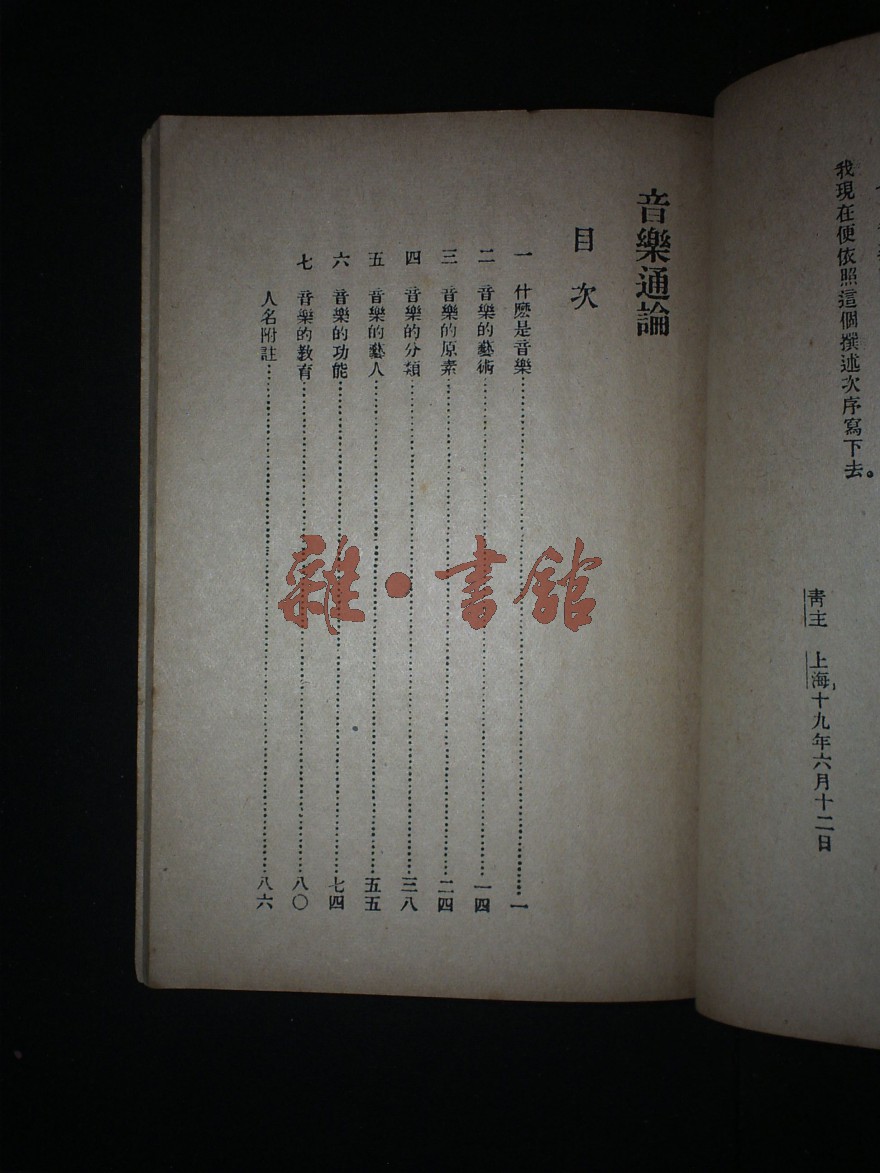 我現在便依照這個撰述次序寫下去。
靑主 上海,十九年六月十二日
音樂通論
目次
一 什麽是音樂……一
二 音樂的藝術……一四
三 音樂的原素……二四
四 音樂的分類……三八
五 音樂的藝人……五五
六 音樂的功能……七四
七 音樂的教育……八〇
人名附註……八六
雜·書館